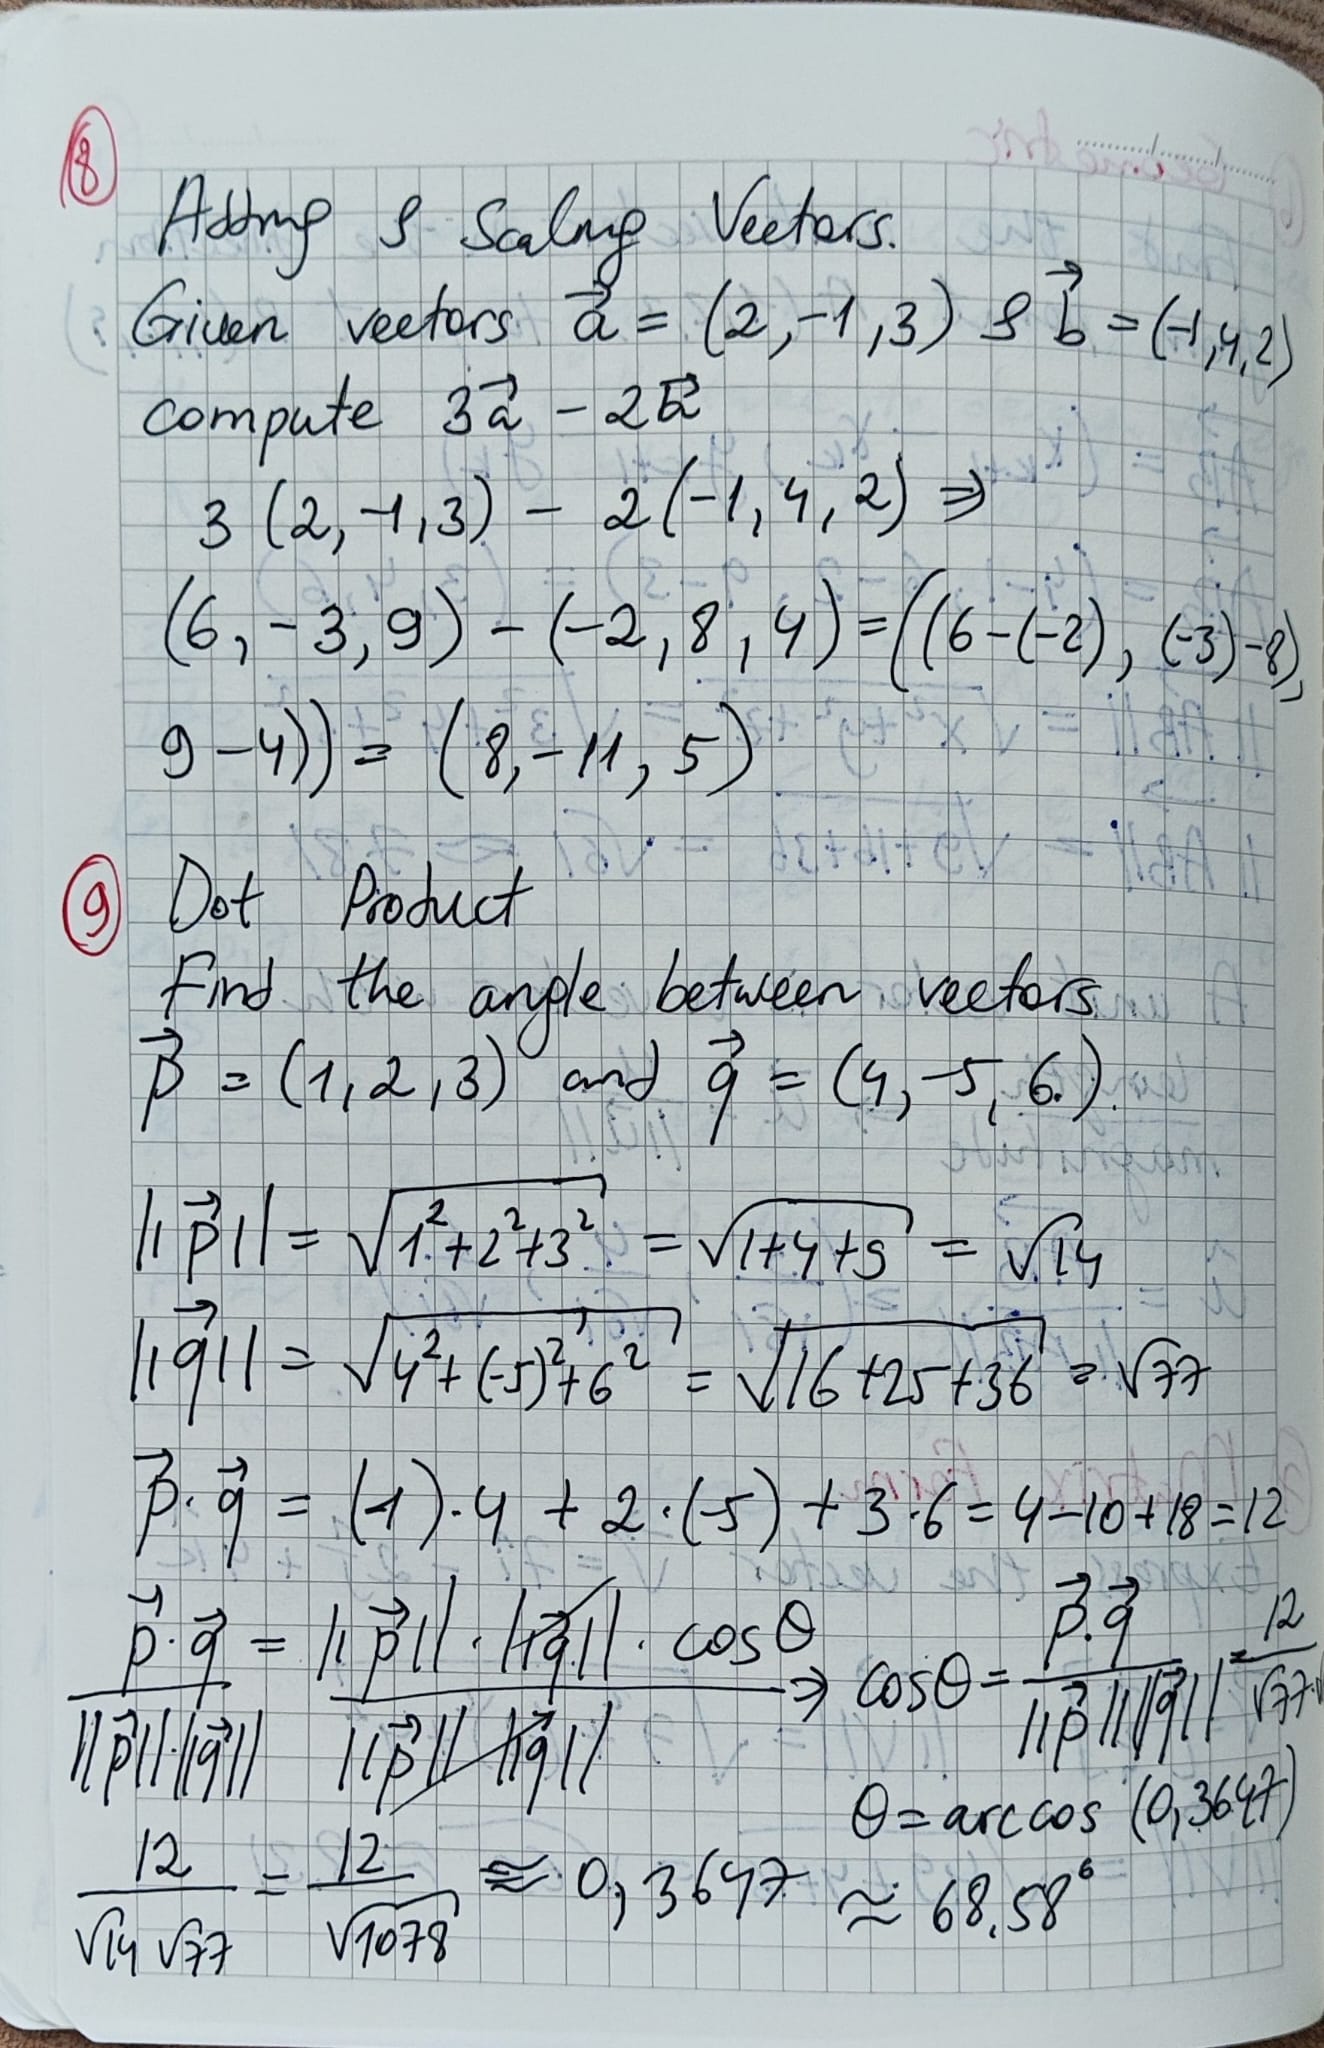 8
Adding & Scaling Vectors.
Given vectors a⃗ = (2,-1,3) & b⃗ = (-1,4,2)
compute 3a⃗ - 2b⃗
3 (2,-1,3) - 2(-1,4,2) ⇒
(6,-3,9) - (-2,8,4) = ((6-(-2), (-3)-8),
9-4)) = (8,-11,5)
9 Dot Product
Find the angle between vectors
p⃗ = (1,2,3) and q⃗ = (4,-5,6.).
||p⃗|| = √(1²+2²+3²) = √(1+4+9) = √14
||q⃗|| = √(4²+(-5)²+6²) = √(16+25+36) = √77
p⃗·q⃗ = (-1)·4 + 2·(-5) + 3·6 = 4-10+18 = 12
p⃗·q⃗ / ||p⃗||·||q⃗|| = ||p⃗||·||q⃗||·cosθ / ||p⃗|| ||q⃗|| ⇒ cosθ = p⃗·q⃗ / ||p⃗|| ||q⃗|| = 12 / √77·√
θ = arccos (0,3647)
12 / √14 √77 = 12 / √1078 ≈ 0,3647 ≈ 68.58°